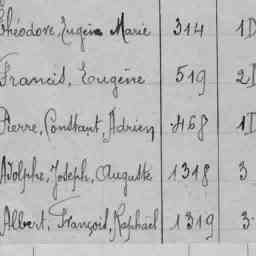 Théodore, Eugène Marie 314 1D
Francis, Eugène 519 2D
Pierre, Constant, Adrien 468 1D
Adolphe, Joseph, Auguste 1318 3
Albert, François, Raphaël 1319 3